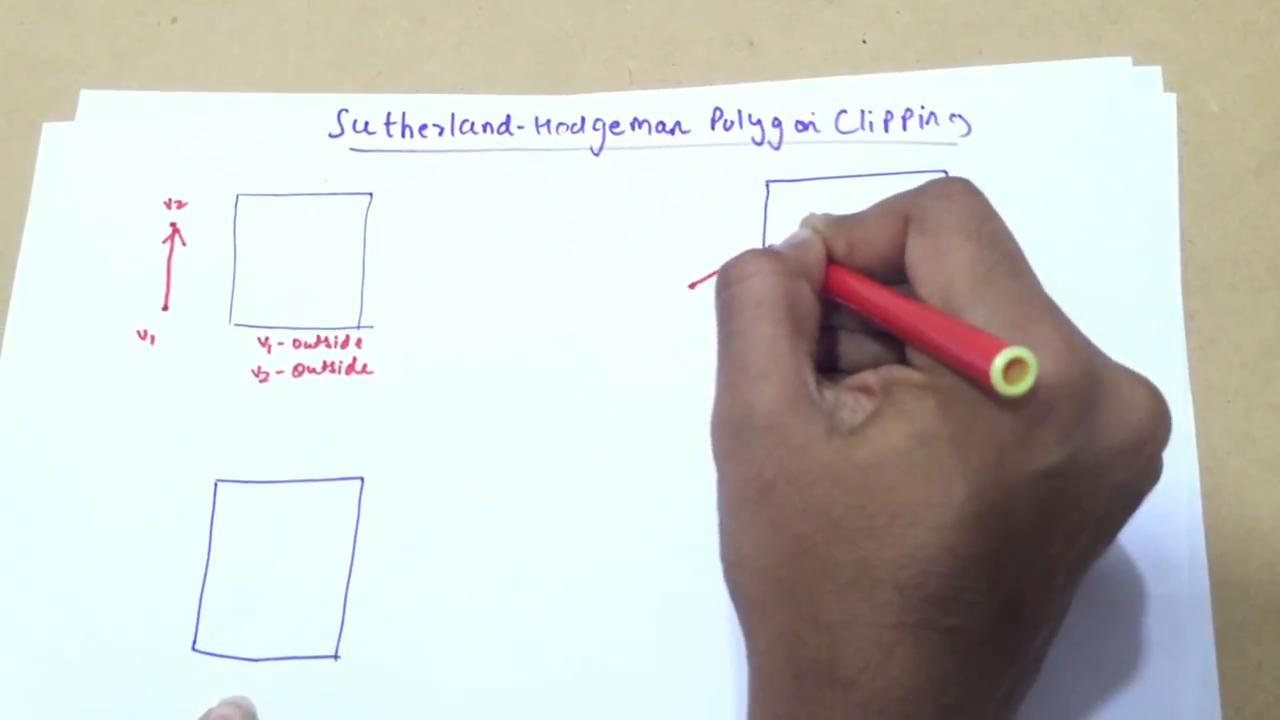 Sutherland-Hodgeman Polygon Clipping
v2
v1
v1 - outside
v2 - outside